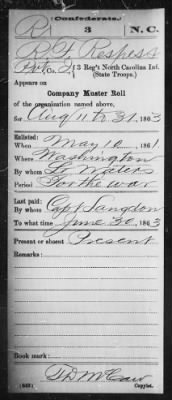 (Confederate.)
R 3 N. C.
R F Respess
Pvt, Co. I, 3 Reg't North Carolina Inf.
(State Troops.)
Appears on
Company Muster Roll
of the organization named above,
for Aug 11 to 31, 1863
Enlisted:
When May 10, 1861
Where Washington
By whom Lt Waters
Period For the war
Last paid:
By whom Capt Langdon
To what time June 30, 1863
Present or absent Present
Remarks:
Book mark:
T D McCaw
(642) Copyist.